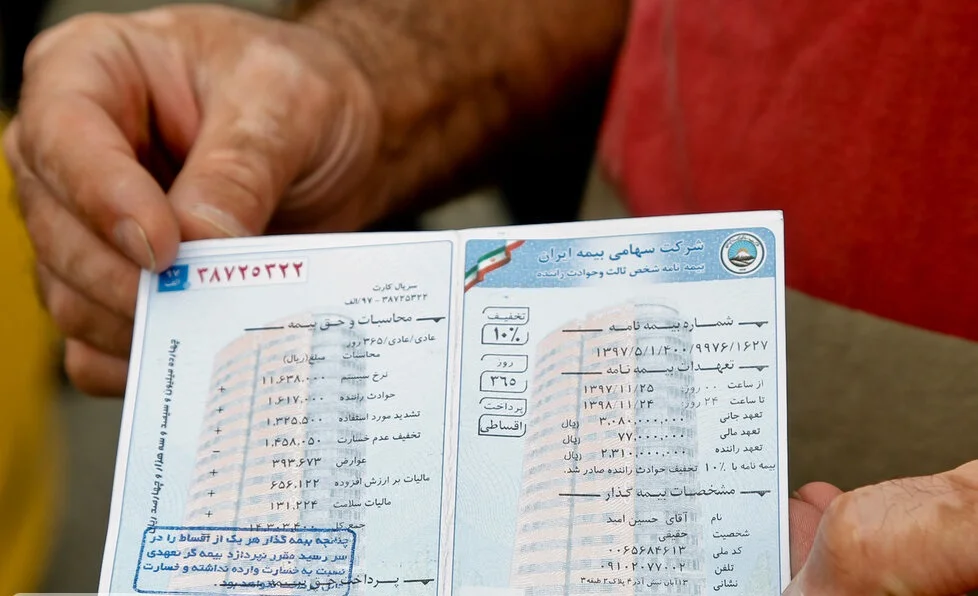 شرکت سهامی بیمه ایران
بیمه نامه شخص ثالث و حوادث راننده
تخفیف
۱۰٪
روز
۳۶۵
پرداخت
اقساطی
شماره بیمه نامه
۱۳۹۷/۵/۱/۴۰۰/۹۹۷۶/۱۶۲۷
تعهدات بیمه نامه
از ساعت ۰۰ روز ۱۳۹۷/۱۱/۲۵
تا ساعت ۲۴ روز ۱۳۹۸/۱۱/۲۴
تعهد جانی ۳.۰۸۰.۰۰۰.۰۰۰ ریال
تعهد مالی ۷۷.۰۰۰.۰۰۰ ریال
تعهد راننده ۲.۳۱۰.۰۰۰.۰۰۰ ریال
بیمه نامه با ۱۰٪ تخفیف حوادث راننده صادر شد.
مشخصات بیمه گذار
نام آقای حسین امید
شخصیت حقیقی
کد ملی ۰۰۶۵۶۸۴۶۱۳
تلفن ۰۹۱۰۲۰۷۷۰۰۲
نشانی ۱۳ آبان نبش آذر ۴ پلاک ۲ طبقه ۳
۹۷
الف
۳۸۷۲۵۳۲۲
سریال کارت
۳۸۷۲۵۳۲۲ - ۹۷/الف
محاسبات و حق بیمه
عادی/عادی/۳۶۵ روز
محاسبات مبلغ(ریال)
نرخ سیستم ۱۱.۶۳۸.۰۰۰ +
حوادث راننده ۱.۶۱۷.۰۰۰ +
تشدید مورد استفاده ۱.۳۲۵.۵۰۰ +
تخفیف عدم خسارت ۱.۴۵۸.۰۵۰ −
عوارض ۳۹۳.۶۷۳ +
مالیات بر ارزش افزوده ۶۵۶.۱۲۲ +
مالیات سلامت ۱۳۱.۲۲۴ +
جمع کل ۱۴.۳۰۳.۴۰۰
چهارده میلیون و سیصد و سه هزار و چهارصد ریال
چنانچه بیمه گذار هر یک از اقساط را در
سر رسید مقرر نپردازد بیمه گر تعهدی
نسبت به خسارت وارده نداشته و خسارت
پرداخت حق بیمه